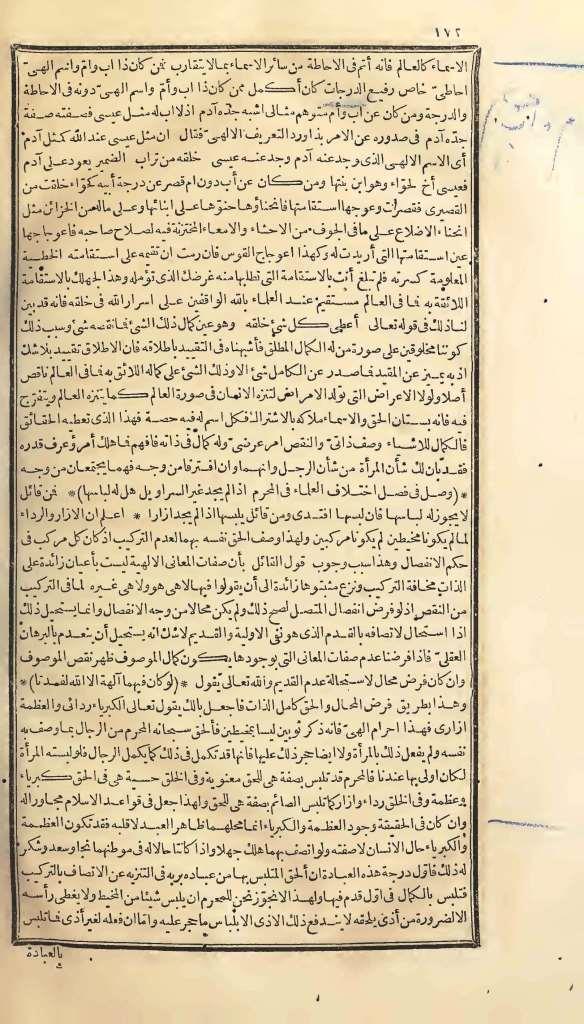 ١٧٢
الاسماء كالعالم فانه أتم فى الاحاطة من سائر الاسماء بما لا يتقارب فمن كان ذا اب وامّ واسم الهىّ
احاطىّ خاص رفيع الدرجات كان أكمل ممن كان ذا اب وأمّ واسم الهىّ دونه فى الاحاطة
والدرجة ومن كان عن اب وأم متوهم مثالى اشبه جدّه آدم اذ لا اب له مثل عيسى فصفته صفة
جدّه آدم فى صدوره عن الامر بذا ورد التعريف الالهىّ فقال ان مثل عيسى عند الله كمثل آدم
أى الاسم الالهى الذى وجد عنه آدم وجد عنه عيسى خلقه من تراب الضمير يعود على آدم
فعيسى أخ لحوّاء وهو ابن بنتها ومن كان عن أب دون ام قصر عن درجة أبيه كحوّاء خلقت من
القصيرى فقصرت وعوجها استقامتها فانحناؤها حنوّها على ابنائها وعلى ماله من الخزائن مثل
انحناء الاضلاع على ما فى الجوف من الاحشاء والامعاء المختزنة فيه لصلاح صاحبه فاعوجاجها
عين استقامتها التى أريدت له وكهذا اعوجاج القوس فان رمت ان تقيمه على استقامته الخطية
المعلومة كسرته فلم تبلغ أنت بالاستقامة التى تطلبها منه غرضك الذى تؤمله وهذا لجهلك بالاستقامة
اللائقة به فما فى العالم مستقيم عند العلماء بالله الواقفين على اسرار الله فى خلقه فانه قد بين
لنا ذلك فى قوله تعالى أعطى كل شئ خلقه وهو عين كمال ذلك الشئ فما نقصه شئ وسبب ذلك
كوننا مخلوقين على صورة من له الكمال المطلق فأشبهناه فى التقييد باطلاقه فان الاطلاق تقييد بلاشك
اذ به يميز عن المقيد فما صدر عن الكامل شئ الا وذلك الشئ على كماله اللائق به فما فى العالم ناقص
أصلا ولولا الاعراض التى تولد الامراض لتنزه الانسان فى صورة العالم كما يتنزه العالم ويتفرّج
فيه فانه بستان الحق والاسماء ملاكه بالاشتراك فكل اسم له فيه حصة فهذا الذى تعطيه الحقائق
فالكمال للاشياء وصف ذاتىّ والنقص امر عرضىّ وله كمال فى ذاته فافهم فما هلك أمرؤ عرف قدره
فقد بان لك شأن المرأة من شأن الرجل وانهما وان افترقا من وجه فهما يجتمعان من وجه
* (وصل فى فصل اختلاف العلماء فى المحرم اذا لم يجد غير السراويل هل له لباسها) * فمن قائل
لا يجوز له لباسها فان لبسها افتدى ومن قائل يلبسها اذا لم يجد ازارا * اعلم ان الازار والرداء
لما لم يكونا مخيطين لم يكونا مركبين ولهذا وصف الحق نفسه بهما لعدم التركيب اذ كان كل مركب فى
حكم الانفصال وهذا سبب وجوب قول القائل بأن صفات المعانى الالهية ليست بأعيان زائدة على
الذات مخافة التركيب ونزع مثبتوها زائدة الى أن يقولوا فيها لا هى هو ولا هى غيره لما فى التركيب
من النقص اذ لو فرض انفصال المتصل لصح ذلك ولم يكن محالا من وجه الانفصال وانما يستحيل ذلك
اذا استحال لاتصافه بالقدم الذى هو نفى الاولية والقديم لاشك انه يستحيل أن ينعدم بالبرهان
العقلىّ فاذا فرضنا عدم صفات المعانى التى بوجودها يكون كمال الموصوف ظهر نقص الموصوف
وان كان فرض محال لاستحالة عدم القديم والله تعالى يقول * (لو كان فيهما آلهة الا الله لفسدتا) *
وهذا بطريق فرض المحال والحق كامل الذات فاجعل بالك يقول تعالى الكبرياء ردائى والعظمة
ازارى فهذا احرام الهىّ فانه ذكر ثوبين ليسا بمخيطين فألحق سبحانه المحرم من الرجال بما وصف به
نفسه ولم يفعل ذلك بالمرأة ولا ايضا حجر ذلك عليها فانها قد تكمل فى ذلك كما يكمل الرجال فلو لبسته المرأة
لكان اولى بها عندنا فالمحرم قد تلبس بصفة هى للحق معنوية وفى الخلق حسية هى فى الحق كبرياء
وعظمة وفى الخلق رداء وازار كما تلبس الصائم بصفة هى للحق ولهذا جعل فى قواعد الاسلام مجاورا له
وان كان فى الحقيقة وجود العظمة والكبرياء انما محلهما ظاهر العبد لا قلبه فقد تكون العظمة
والكبرياء حال الانسان لا صفته ولو اتصف بهما هلك جهلا واذا كانتا حالا له فى موطنهما نجا وسعد وشكر
له ذلك فاول درجة هذه العبادة ان ألحق المتلبس بها من عباده بربه فى التنزيه عن الاتصاف بالتركيب
فتلبس بالكمال فى اوّل قدم فيها ولهذا لا نجوّز نحن للمحرم ان يلبس شيئا من المخيط ولا يغطى رأسه
الا لضرورة من أذى يلحقه لا يندفع ذلك الاذى الا بلباس ما حجر عليه واما ان فعله لغير أذى فما تلبس
بالعبادة